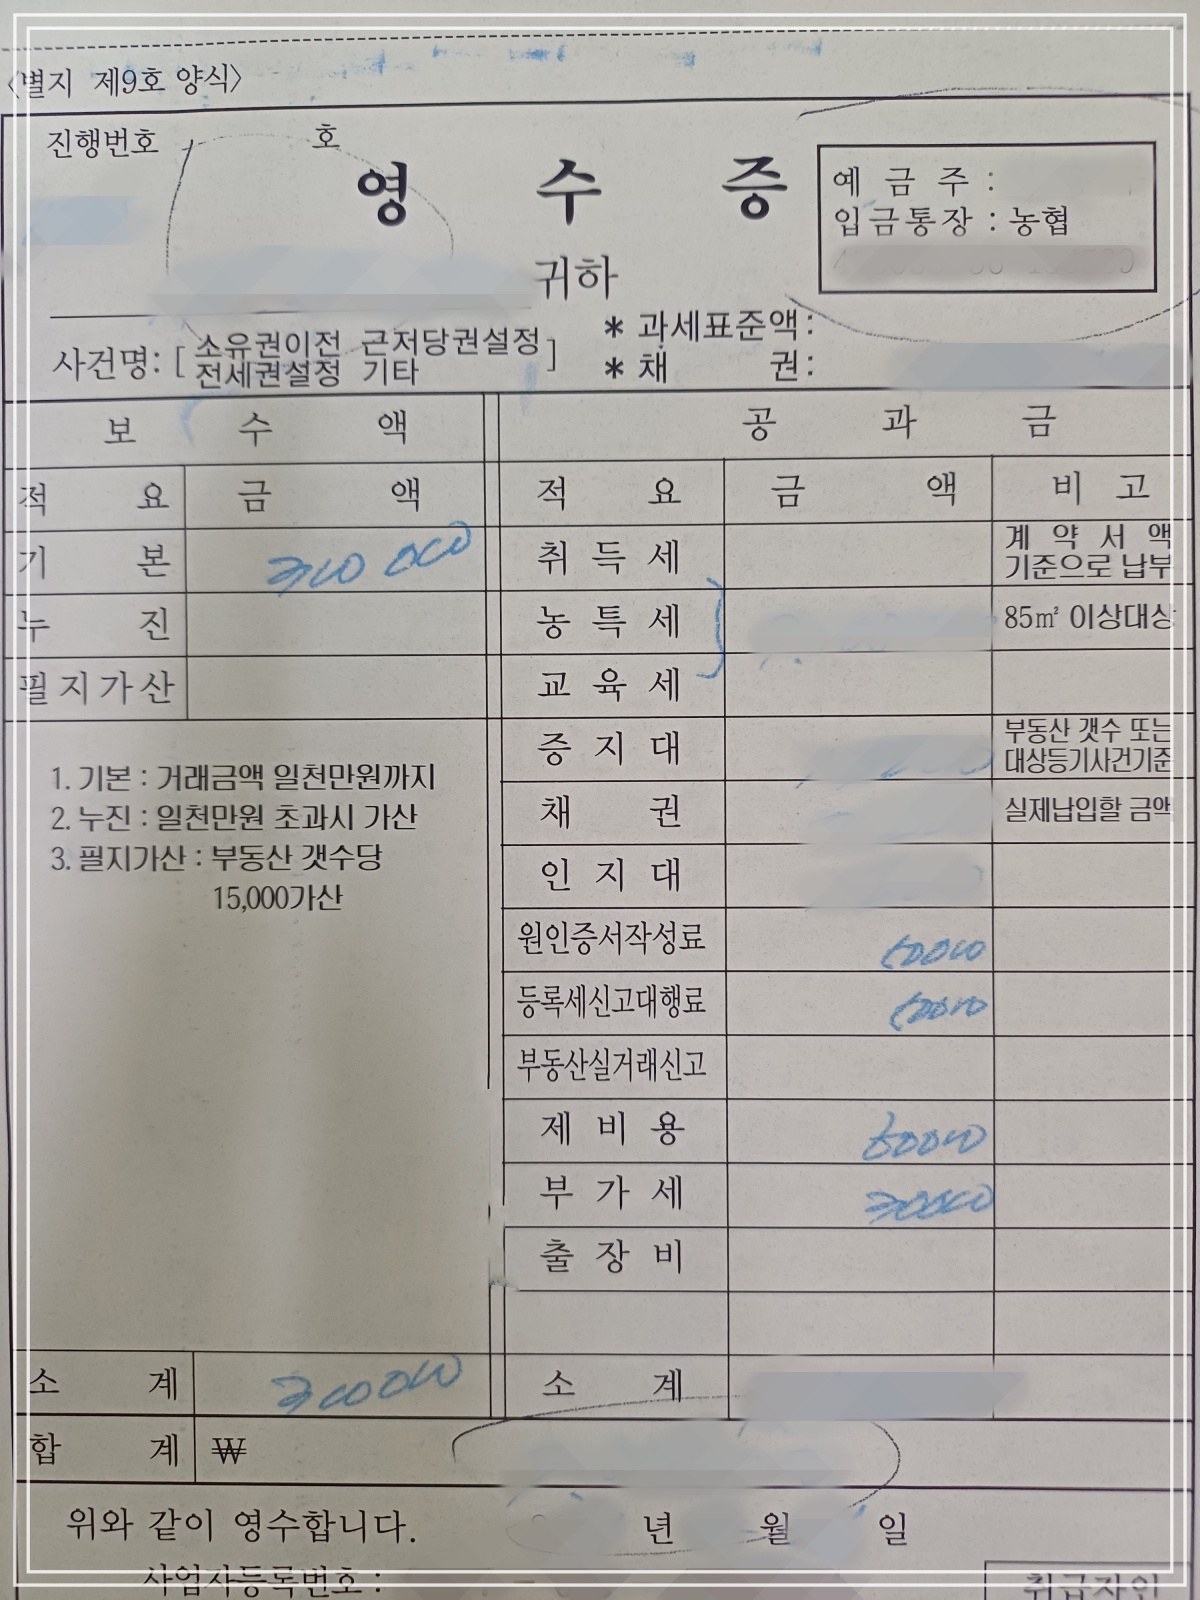 <별지 제9호 양식>
진행번호 호
영 수 증
예 금 주 :
입금통장 : 농협
귀하
사건명: [소유권이전 근저당권설정
전세권설정 기타]
* 과세표준액:
* 채 권:
보 수 액 공 과 금
적 요 금 액 적 요 금 액 비 고
기 본 300000 취 득 세 계 약 서 액
기준으로 납부
누 진 농 특 세 85㎡ 이상대상
필지가산 교 육 세
증 지 대 부동산 갯수 또는
대상등기사건기준
1. 기본 : 거래금액 일천만원까지
2. 누진 : 일천만원 초과시 가산
3. 필지가산 : 부동산 갯수당
15,000가산
채 권 실제납입할 금액
인 지 대
원인증서작성료
등록세신고대행료
부동산실거래신고
제 비 용
부 가 세 30000
출 장 비
소 계 300000 소 계
합 계 ₩
위와 같이 영수합니다. 년 월 일
사업자등록번호 :
취급자인